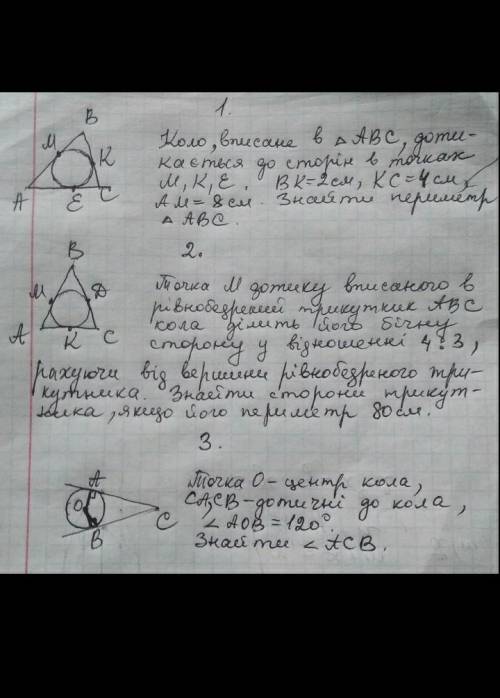 1.
B
M
K
A
E
C
Коло, вписане в △ ABC, доти-
кається до сторін в точках
M, K, E. BK=2см, KC=4см,
AM=8см. Знайти периметр
△ ABC.
2.
B
M
D
A
K
C
Точка M дотику вписаного в
рівнобедрений трикутник ABC
кола ділить його бічну
сторону у відношенні 4:3,
рахуючи від вершини рівнобедреного три-
кутника. Знайти сторони трикут-
ника, якщо його периметр 80см.
3.
A
O
B
C
Точка O-центр кола,
CA, CB-дотичні до кола,
∠AOB=120°.
Знайти ∠ACB.